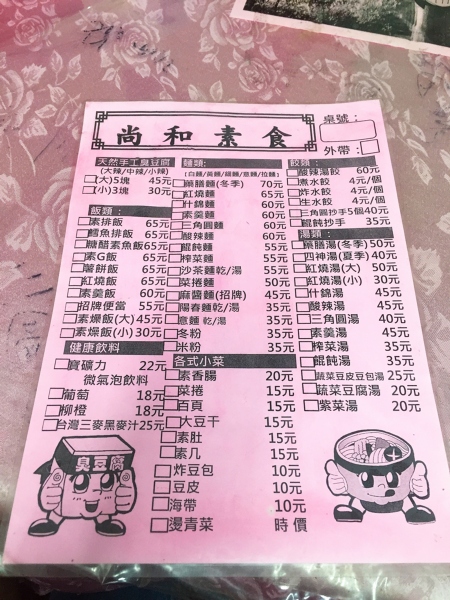 尚和素食
桌號：
外帶：
天然手工臭豆腐
(大辣/中辣/小辣)
(大)5塊 45元
(小)3塊 30元
飯類：
素排飯 65元
鱈魚排飯 65元
糖醋素魚飯65元
素G飯 65元
薯餅飯 65元
紅燒飯 65元
素羹飯 60元
招牌便當 55元
素燥飯(大)45元
素燥飯(小)30元
健康飲料
寶礦力 22元
微氣泡飲料
葡萄 18元
柳橙 18元
台灣三麥黑麥汁25元
臭豆腐
麵類：
(白麵/黃麵/細麵/意麵/拉麵)
藥膳麵(冬季) 70元
紅燒麵 65元
什錦麵 65元
素羹麵 60元
三角圓麵 60元
酸辣麵 60元
餛飩麵 55元
榨菜麵 55元
沙茶麵乾/湯 55元
菜捲麵 50元
麻醬麵(招牌) 45元
陽春麵乾/湯 35元
意麵 乾/湯 35元
冬粉 35元
米粉 35元
各式小菜
素香腸 20元
菜捲 15元
百頁 15元
大豆干 15元
素肚 15元
素几 15元
炸豆包 10元
豆皮 10元
海帶 10元
燙青菜 時價
餃類：
酸辣湯餃 60元
煮水餃 4元/個
炸水餃 4元/個
生水餃 4元/個
三角圓抄手5個40元
餛飩抄手 35元
湯類：
藥膳湯(冬季)50元
四神湯(夏季)40元
紅燒湯(大) 50元
紅燒湯(小) 30元
什錦湯 45元
酸辣湯 45元
三角圓湯 40元
素羹湯 45元
榨菜湯 35元
餛飩湯 35元
蔬菜豆皮豆包湯 25元
蔬菜豆腐湯 20元
紫菜湯 20元